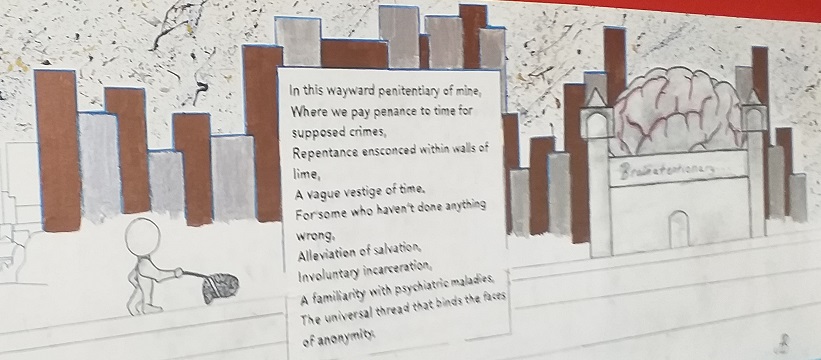 In this wayward penitentiary of mine,
Where we pay penance to time for
supposed crimes,
Repentance ensconced within walls of
lime,
A vague vestige of time.
For some who haven't done anything
wrong,
Alleviation of salvation,
Involuntary incarceration,
A familiarity with psychiatric maladies,
The universal thread that binds the faces
of anonymity.